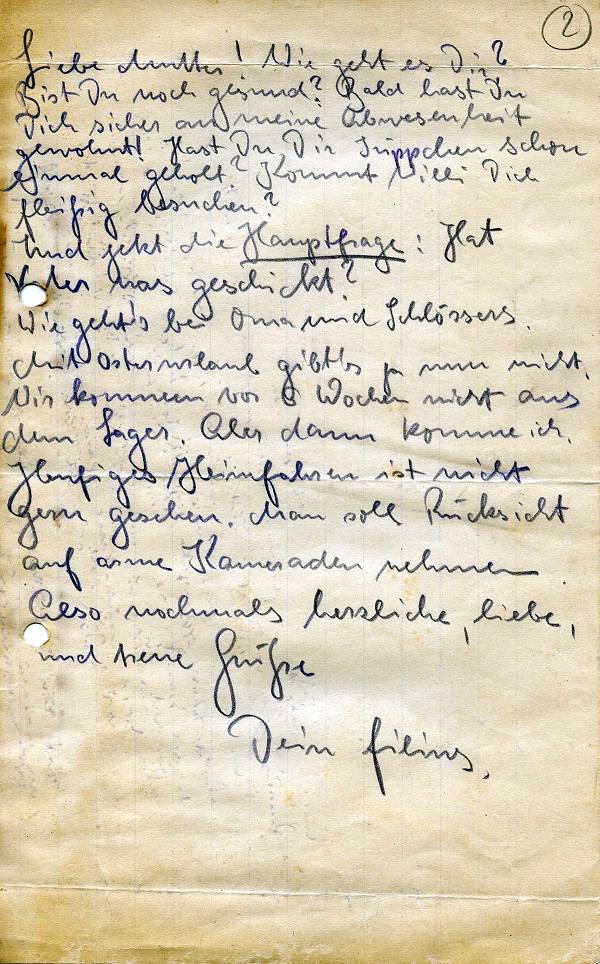 2
Liebe Mutter! Wie geht es Dir?
Bist Du noch gesund? Bald hast Du
Dich sicher an meine Abwesenheit
gewöhnt! Hast Du Dir Süppchen schon
einmal geholt? Kommt Willi Dich
fleißig besuchen?
Und jetzt die Hauptfrage: Hat
Vater was geschickt?
Wie geht's bei Oma und Schlössers.
Mit Osterurlaub gibt's ja nun nicht.
Wir kommen vor 8 Wochen nicht aus
dem Lager. Aber dann komme ich.
Häufiges Heimfahren ist nicht
gern gesehen. Man soll Rücksicht
auf arme Kameraden nehmen
Also nochmals herzliche, liebe,
und treue Grüße
Dein filius.